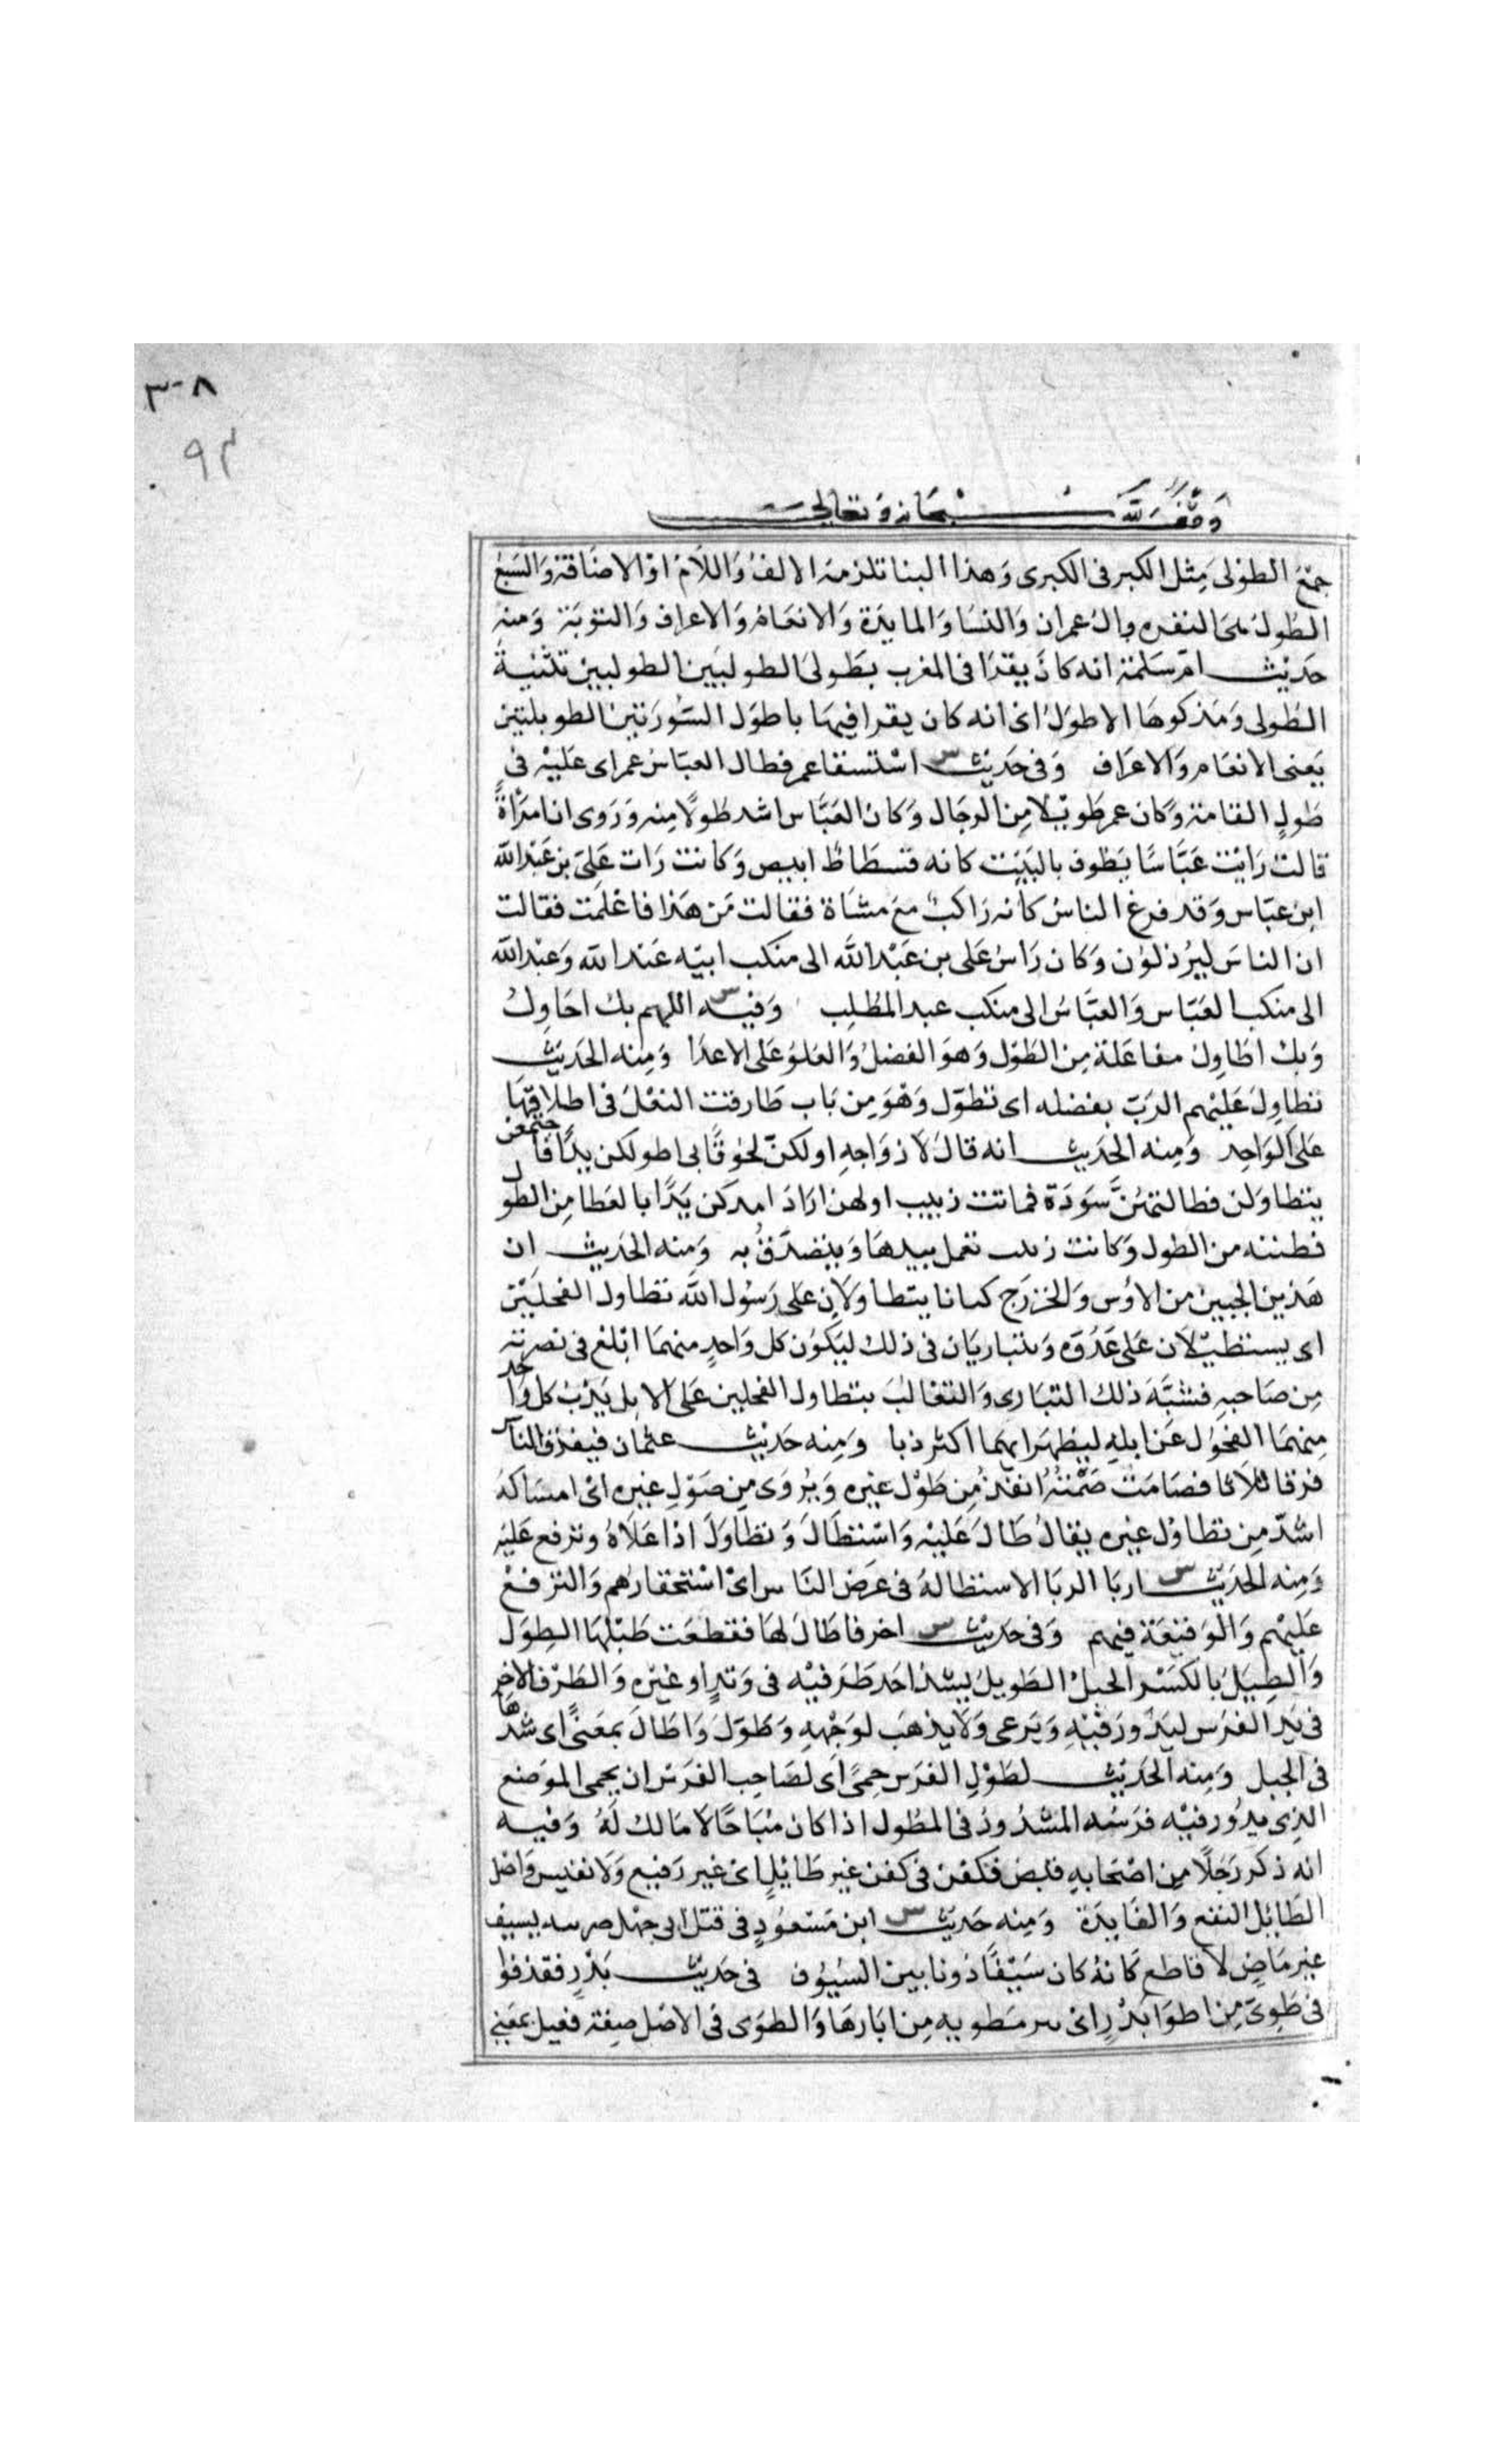 ٣٠٨
٩٣
وقف لله سبحانه وتعالى
جمع الطولى مثل الكبر فى الكبرى وهذا البنا تلزمه الالف واللام او الاضافة والسبع
الطول هى البقره وال عمران والنسا والمايدة والانعام والاعراف والتوبة ومنه
حديث ام سلمة انه كان يقرا فى المغرب بطولى الطوليين الطوليين تثنية
الطولى ومذكرها الاطول اى انه كان يقرا فيها باطول السورتين الطويلتين
يعنى الانعام والاعراف وفى حديث س استسقا عمر فطال العباس عمر اى عليه فى
طول القامة وكان عمر طويلا من الرجال وكان العباس اشد طولا منه وروى ان امراة
قالت رايت عباسا يطوف بالبيت كانه فسطاط ابيض وكانت رات على بن عبد الله
ابن عباس وقد فرع الناس كانه راكب مع مشاة فقالت من هذا فاعلمت فقالت
ان الناس ليرذلون وكان راس على بن عبد الله الى منكب ابيه عبد الله وعبد الله
الى منكب العباس والعباس الى منكب عبد المطلب وفيه س اللهم بك احاول
وبك اطاول مفاعلة من الطول وهو الفضل والعلو على الاعدا ومنه الحديث
تطاول عليهم الرب بفضله اى تطول وهو من باب طارقت النعل فى اطلاقها
على الواحد ومنه الحديث انه قال لازواجه اولكن لحوقا بى اطولكن يدا فاجتمعن
يتطاولن فطالتهن سودة فماتت زينب اولهن اراد امدكن يدا بالعطا من الطول
فظننه من الطول وكانت زينب تعمل بيدها وتتصدق به ومنه الحديث ان
هذين الحيين من الاوس والخزرج كانا يتطاولان على رسول الله تطاول الفحلين
اى يستطيلان على عدوه ويتباريان فى ذلك ليكون كل واحد منهما ابلغ فى نصرته
من صاحبه فشبه ذلك التبارى والتغالب بتطاول الفحلين على الابل يذب كل واحد
منهما الفحول عن ابله ليظهر ايهما اكثر ذبا ومنه حديث عثمان فيفترق الناس
فرقا ثلاثا فصامت صمته انفذ من طول غيره ويروى من صول غيره اى امساكه
اشد من تطاول غيره يقال طال عليه واستطال وتطاول اذا علاه وترفع عليه
ومنه الحديث س اربا الربا الاستطالة فى عرض الناس اى استحقارهم والترفع
عليهم والوقيعة فيهم وفى حديث س اخر فاطال لها فقطعت طيلها الطول
والطيل بالكسر الحبل الطويل يشد احد طرفيه فى وتد او غيره والطرف الاخر
فى يد الفرس ليدور فيه ويرعى ولا يذهب لوجهه وطول واطال بمعنى اى شدها
فى الحبل ومنه الحديث لطول الفرس حمى اى لصاحب الفرس ان يحمى الموضع
الذى يدور فيه فرسه المشدود فى الطول اذا كان مباحا لا مالك له وفيه
انه ذكر رجلا من اصحابه قبض فكفن فى كفن غير طايل اى غير رفيع ولا نفيس واصل
الطايل النفع والفايدة ومنه حديث س ابن مسعود فى قتل ابى جهل ضربته بسيف
غير ماض لا قاطع كانه كان سيفا دونا بين السيوف فى حديث بدر فقذفوا
فى طوى من اطوا بدر اى بير مطويه من ابارها والطوى فى الاصل صفة فعيل بمعنى